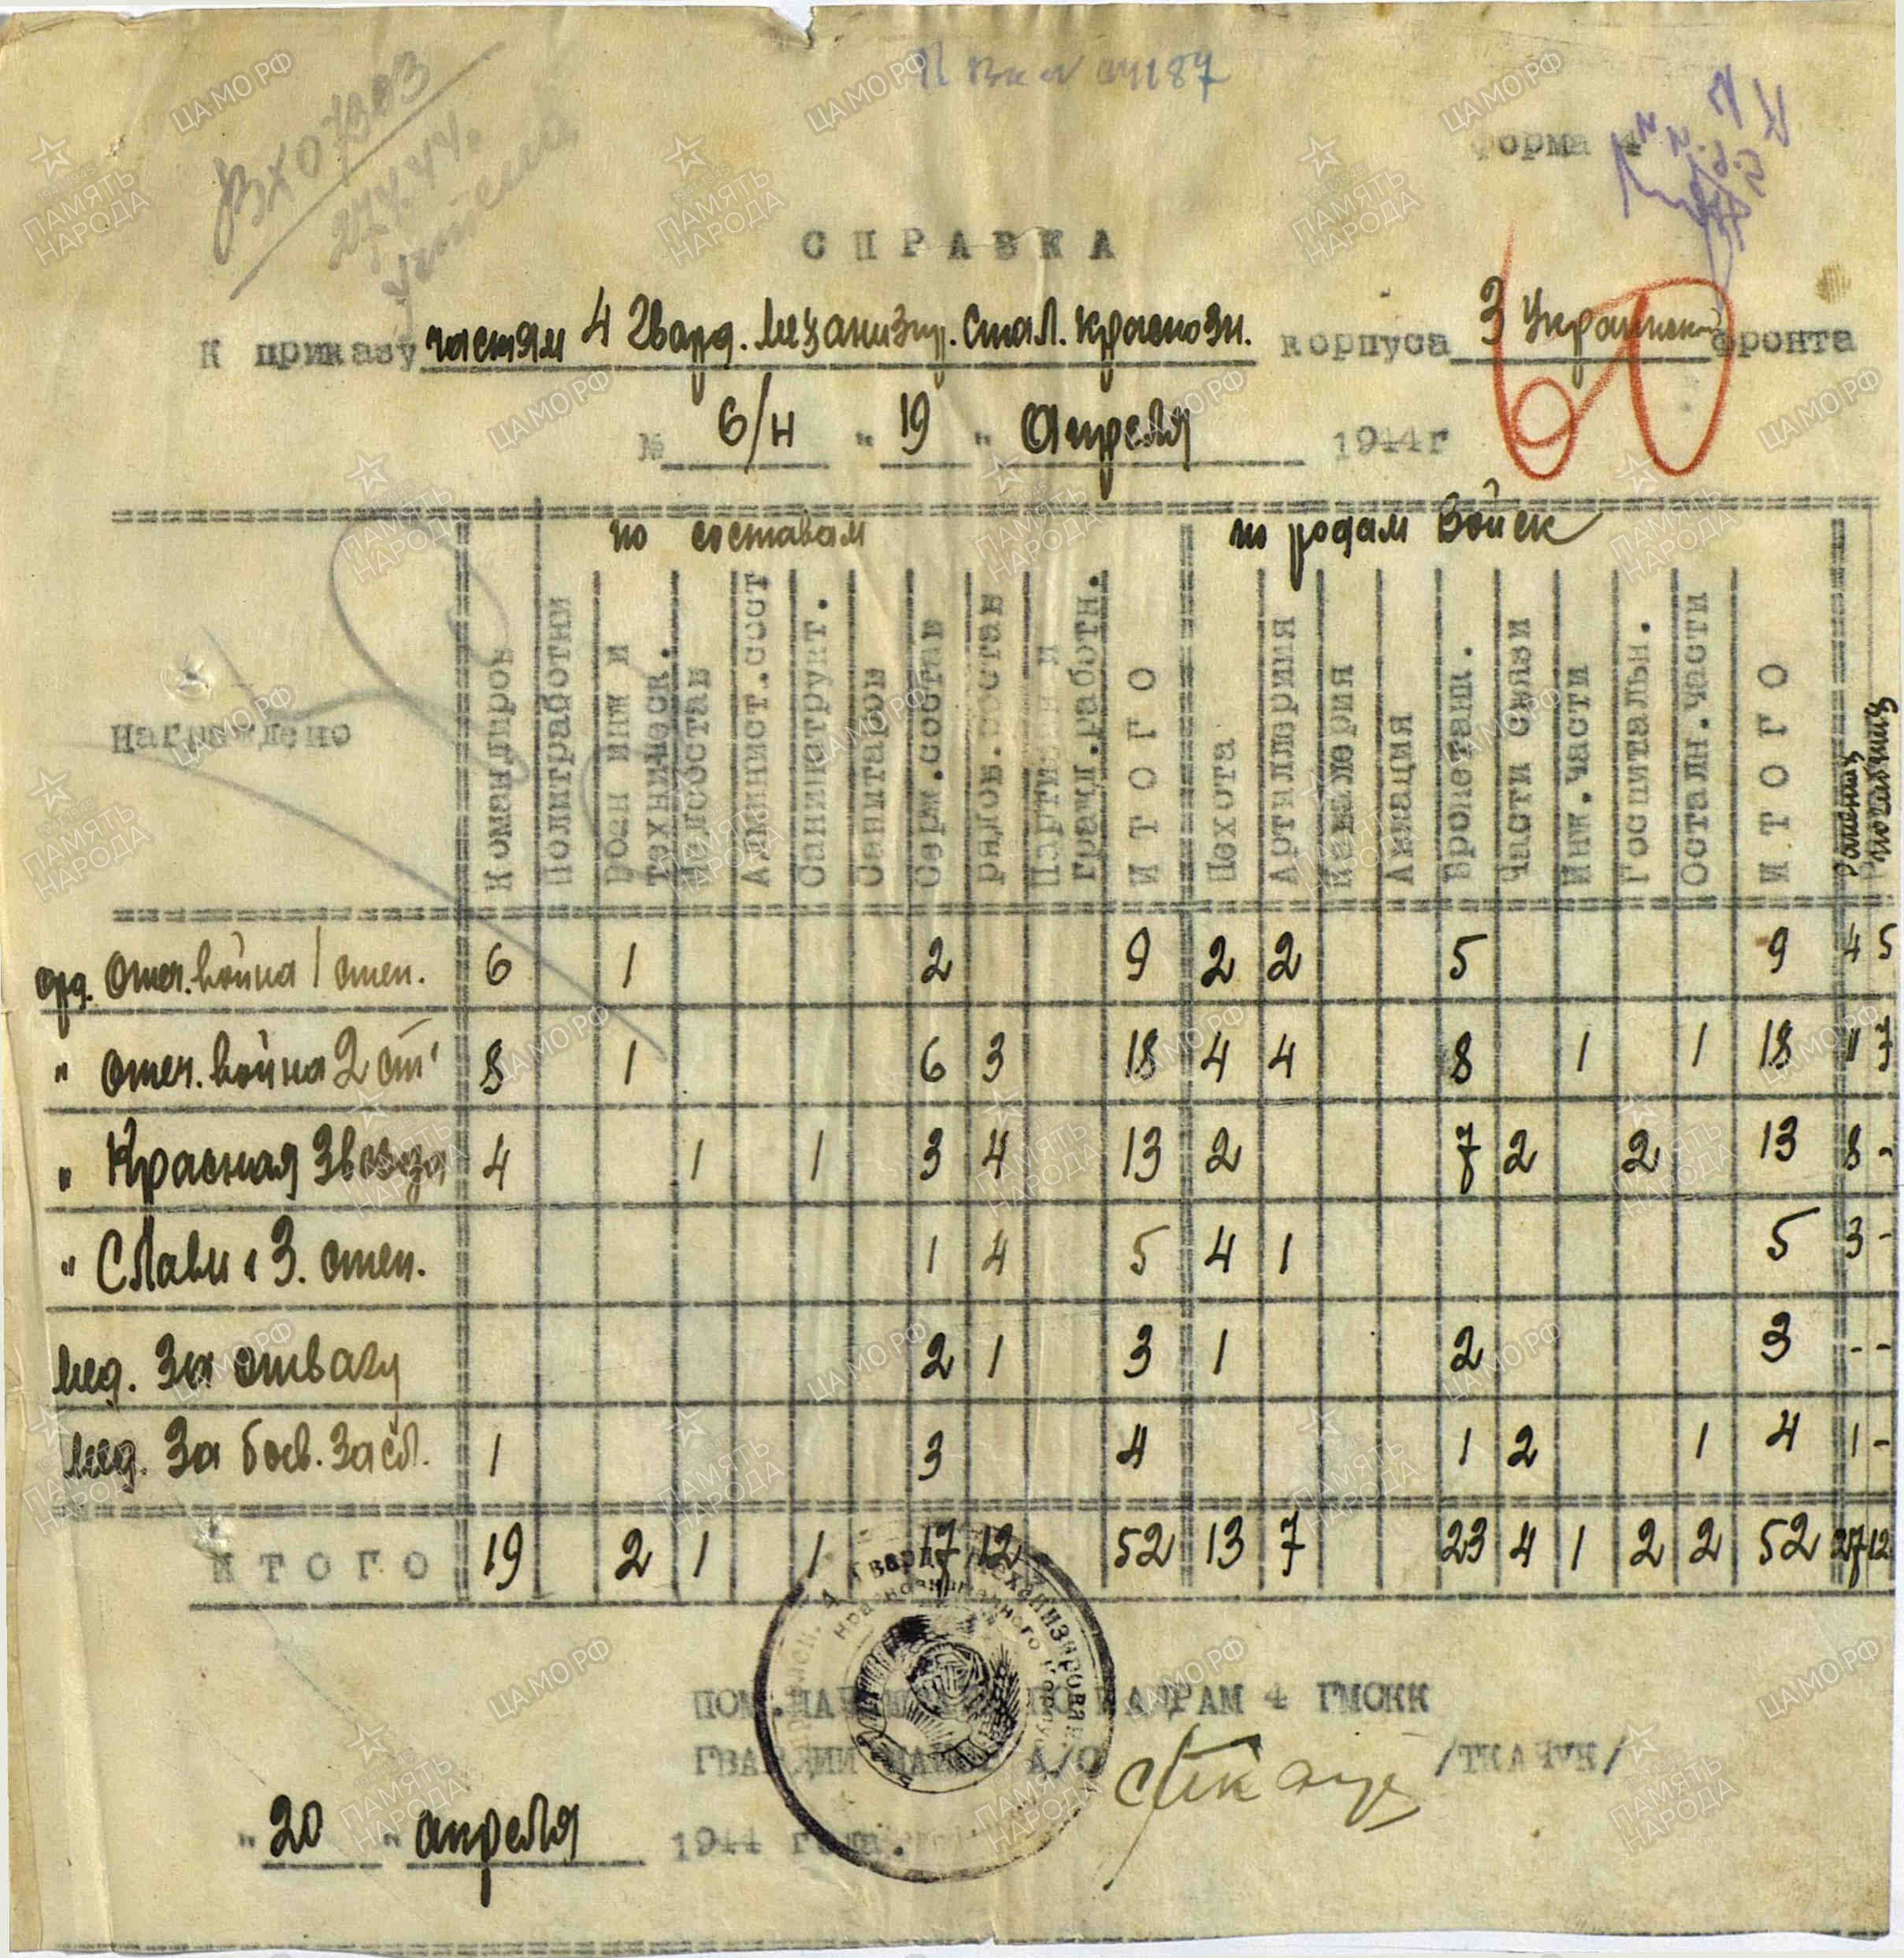 ВХ 07303
Форма 4
СПРАВКА
К приказу частям 4 Гвард. Механизир. Стал. Краснозн. корпуса 3 Украинский фронта
№ б/н " 19 " Апреля 1944 г
60
по составам по родам войск
Награждено
Командиров
Политработни
Воен инж и техническ.
Медсостав
Админист.сост
Санинструкт.
Санитаров
Серж.состав
рядов.состав
Партизан и гражд.работн.
ИТОГО
Пехота
Артиллерия
Кавалерия
Авиация
Бронетанк.
Части связи
Инж.части
Госпитальн.
Остальн.части
ИТОГО
Раненых
Погибших
орд. Отеч. война 1 степ. 6 1 2 9 2 2 5 9 4 5
" Отеч. война 2 ст 8 1 6 3 18 4 4 8 1 1 18 11 7
" Красная Звезда 4 1 1 3 4 13 2 7 2 2 13 8 -
" Славы 3. степ. 1 4 5 4 1 5 3 -
мед. За отвагу 2 1 3 1 2 3 - -
мед. За боев. засл. 1 3 4 1 2 1 4 1 -
ИТОГО 19 2 1 1 17 12 52 13 7 23 4 1 2 2 52 27 12
ПО КАДРАМ 4 ГМСКК
ГВАРДИИ МАЙОР А/С /ТКАЧУК/
" 20 " апреля 1944 года.
ПАМЯТЬ НАРОДА
ЦАМО РФ